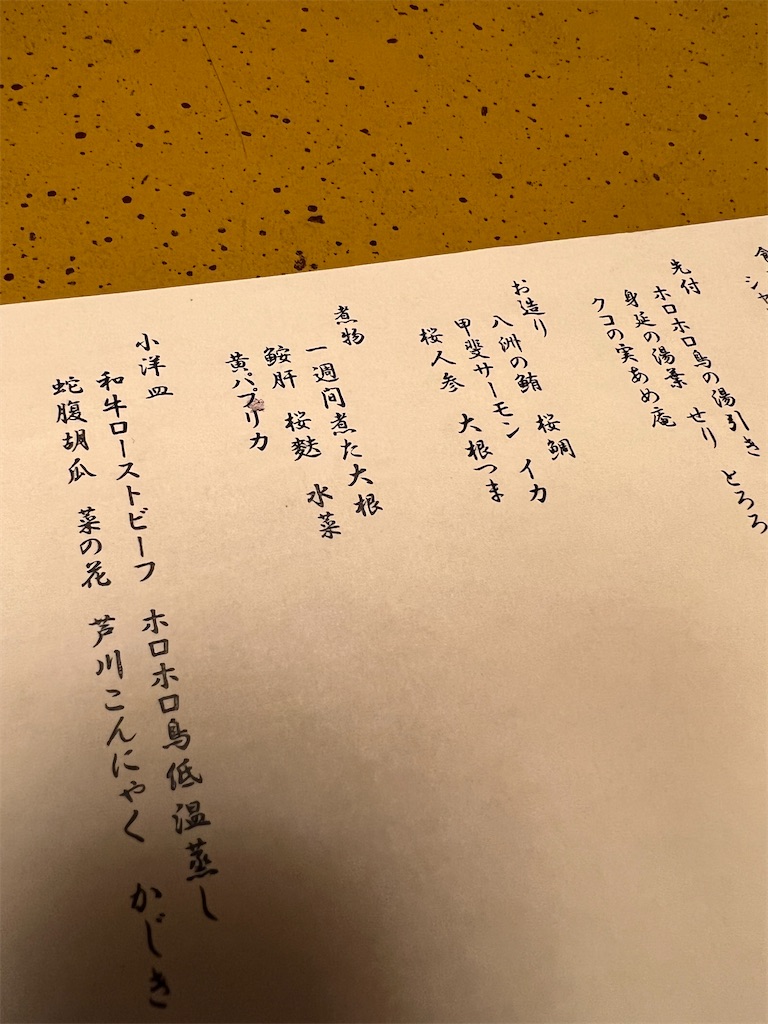 先付
ホロホロ鳥の湯引き とろろ
身延の湯葉 せり
クコの実あめ庵
お造り
八洲の鮪 桜鯛
甲斐サーモン イカ
桜人参 大根つま
煮物
一週間煮た大根
鮟肝 桜麩 水菜
黄パプリカ
小洋皿
和牛ローストビーフ ホロホロ鳥低温蒸し
蛇腹胡瓜 菜の花 芦川こんにゃく かじき